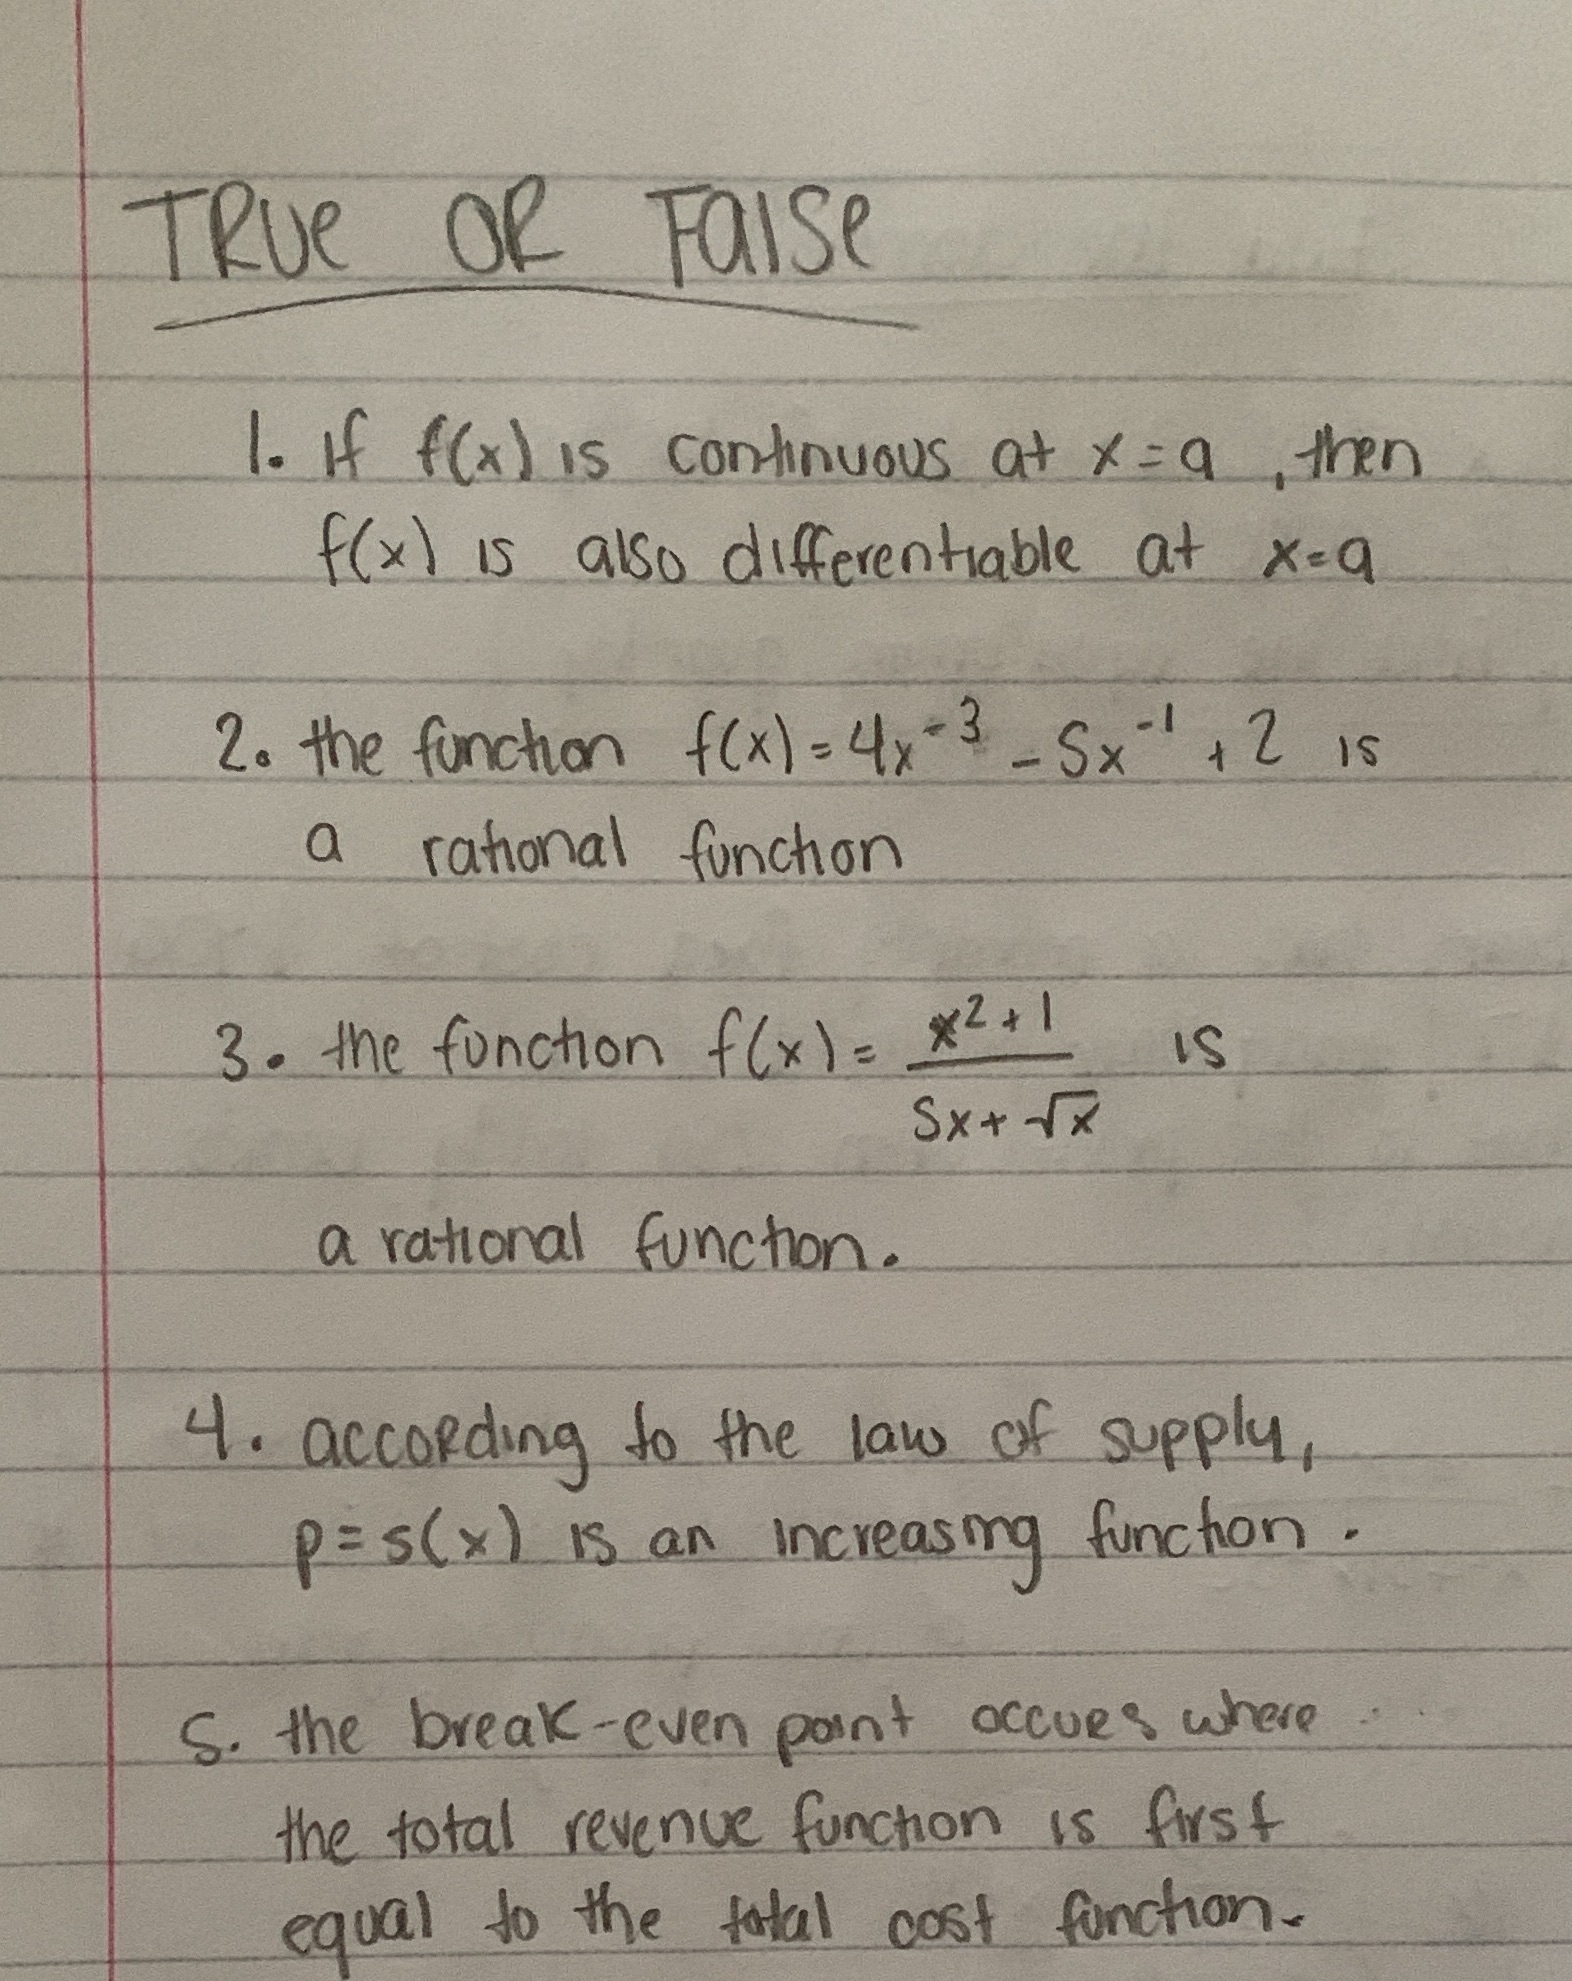 TRUe OR FalSe
1. If f(x) is continuous at x=a, then
f(x) is also differentiable at x=a
2. the function f(x)=4x⁻³-5x⁻¹+2 is
a rational function
3. the function f(x)= (x²+1)/(5x+√x) is
a rational function.
4. according to the law of supply,
p=s(x) is an increasing function.
5. the break-even point occurs where
the total revenue function is first
equal to the total cost function.